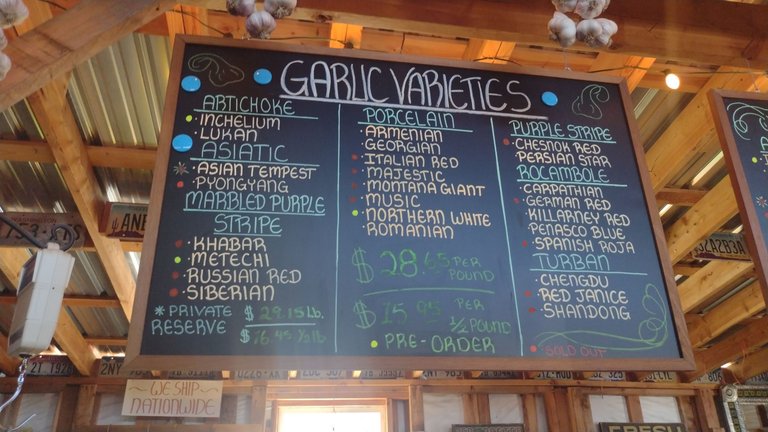 GARLIC VARIETIES
ARTICHOKE
INCHELIUM
LUKAN
ASIATIC
*ASIAN TEMPEST
PYONGYANG
MARBLED PURPLE
STRIPE
KHABAR
METECHI
RUSSIAN RED
SIBERIAN
* PRIVATE
RESERVE
$ 29.15 lb.
PORCELAIN
ARMENIAN
GEORGIAN
ITALIAN RED
MAJESTIC
MONTANA GIANT
MUSIC
NORTHERN WHITE
ROMANIAN
$ 28.65 PER
POUND
$ 15.95 PER
1/2 POUND
PRE-ORDER
PURPLE STRIPE
CHESNOK RED
PERSIAN STAR
ROCAMBOLE
CARPATHIAN
GERMAN RED
KILLARNEY RED
PENASCO BLUE
SPANISH ROJA
TURBAN
CHENGDU
RED JANICE
SHANDONG
SOLD OUT
WE SHIP
NATIONWIDE
WASHINGTON
FRESH